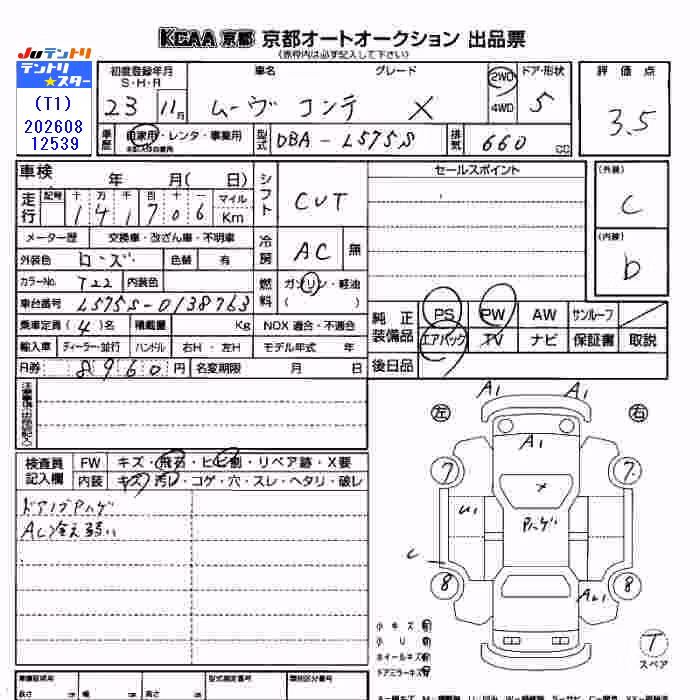 KCAA 京都 京都オートオークション 出品票
(赤枠内は必ず記入して下さい)
JUテントリ
テントリ★スター
(T1)
202608
12539
初度登録年月 車名 グレード ドア・形状 評価点
S・H・R
23 11月 ムーヴ コンテ X 2WD 4WD 5 3.5
車歴 自家用・レンタ・事業用 型式 DBA-L575S 排気 660 CC
車検 年 月(日) シフト CVT セールスポイント (外装) C
走行 記号 十 万 千 百 十 一 マイル Km
1 4 1 7 0 6
メーター歴 交換車・改ざん車・不明車 冷房 AC 無 (内装) D
外装色 ローズ 色替 有
カラーNo. T22 内装色 燃料 ガソリン・軽油
車台番号 L575S-0138763 ( )
乗車定員 (4)名 積載量 Kg NOX 適合・不適合
純正装備品 PS PW AW サンルーフ
エアバック TV ナビ 保証書 取説
輸入車 ディーラー・並行 ハンドル 右H・左H モデル年式 年
後日品
R券 8960円 名変期限 月 日
検査員記入欄 FW キズ・飛石・ヒビ割・リペア跡・X要
内装 キズ・汚レ・コゲ・穴・スレ・ヘタリ・破レ
ドアノブPハゲ
AC冷え弱い
左 右
A1 A1
A1
7 7
×
U1 Pハゲ
C
8 8
小キズ 有
小U 有
ホイールキズ 有
ドアミラーキズ 有
T
スペア
車輌型式 型式指定番号 類別区分番号
長さ 幅 高さ